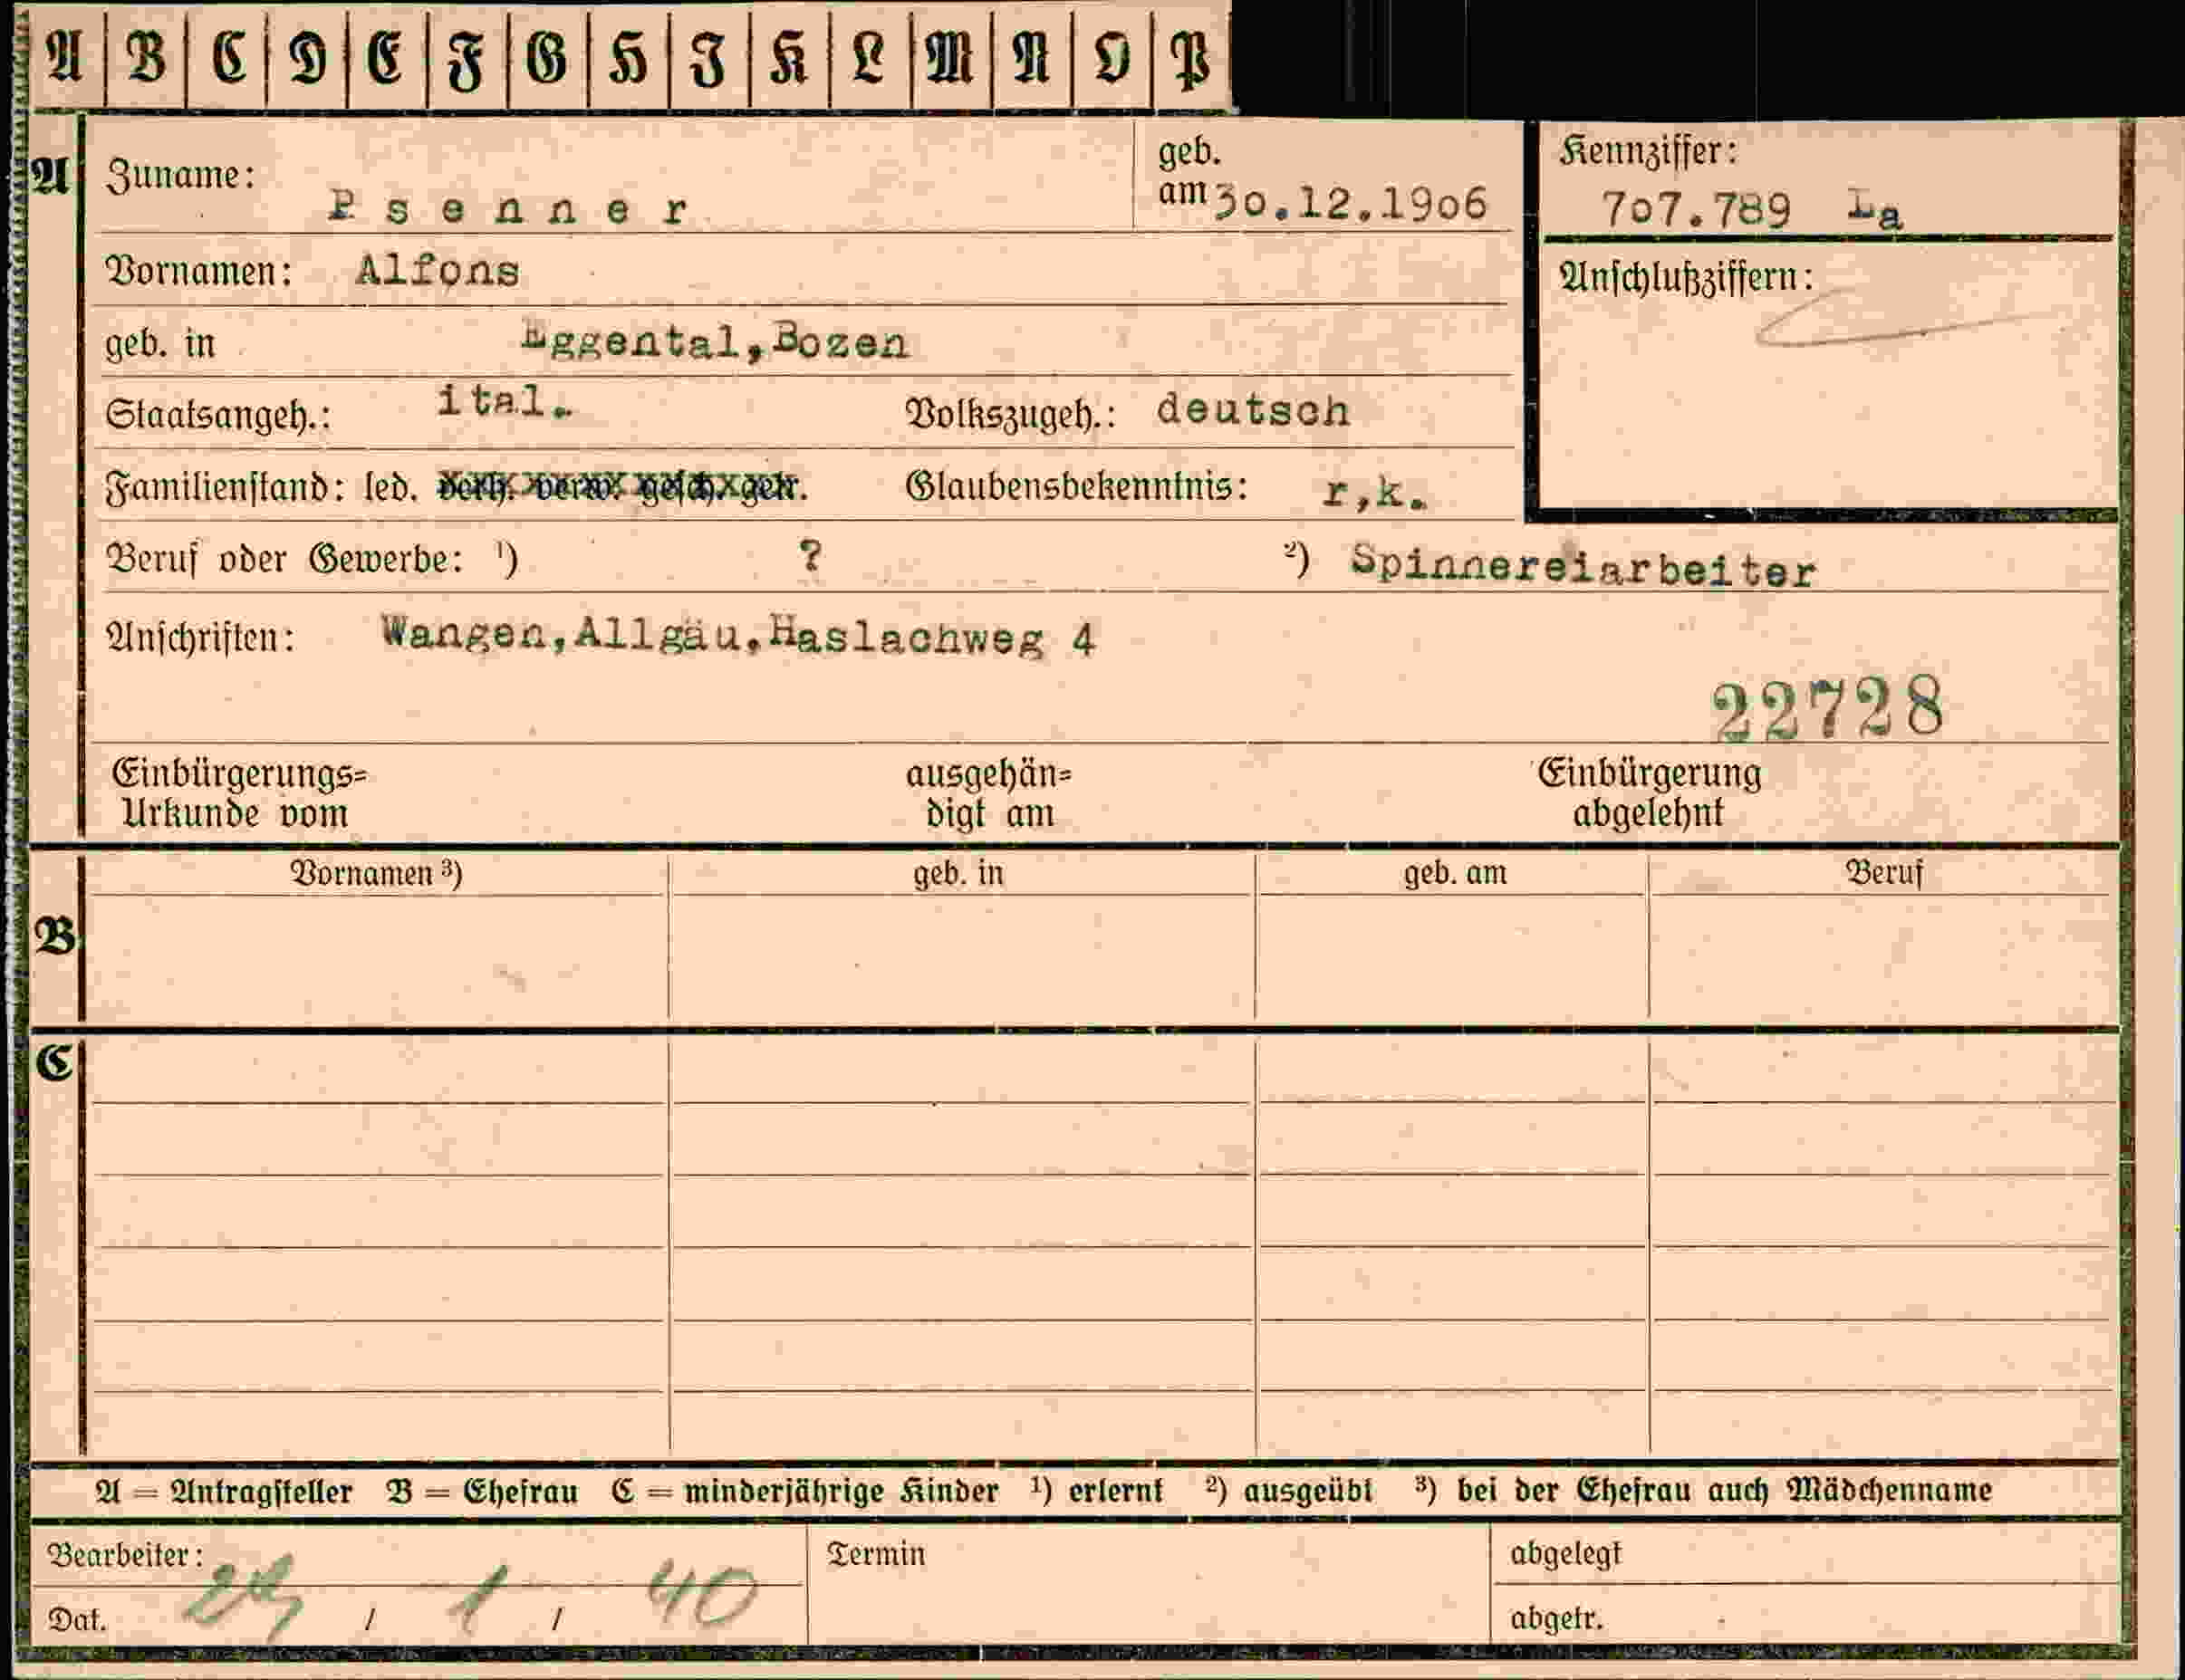 A B C D E F G H I K L M N O P
A Zuname: Psenner geb. am 30.12.1906 Kennziffer: 707.789 La
Vornamen: Alfons Anschlußziffern:
geb. in Eggental,Bozen
Staatsangeh.: ital. Volkszugeh.: deutsch
Familienstand: led. verh. verw. gesch. getr. Glaubensbekenntnis: r,k.
Beruf oder Gewerbe: ¹) ? ²) Spinnereiarbeiter
Anschriften: Wangen,Allgäu,Haslachweg 4
22728
Einbürgerungs= ausgehän= Einbürgerung
Urkunde vom digt am abgelehnt
Vornamen ³) geb. in geb. am Beruf
B
C
A = Antragsteller B = Ehefrau C = minderjährige Kinder ¹) erlernt ²) ausgeübt ³) bei der Ehefrau auch Mädchenname
Bearbeiter: Termin abgelegt
Dat. / 1 / 40 abgetr.